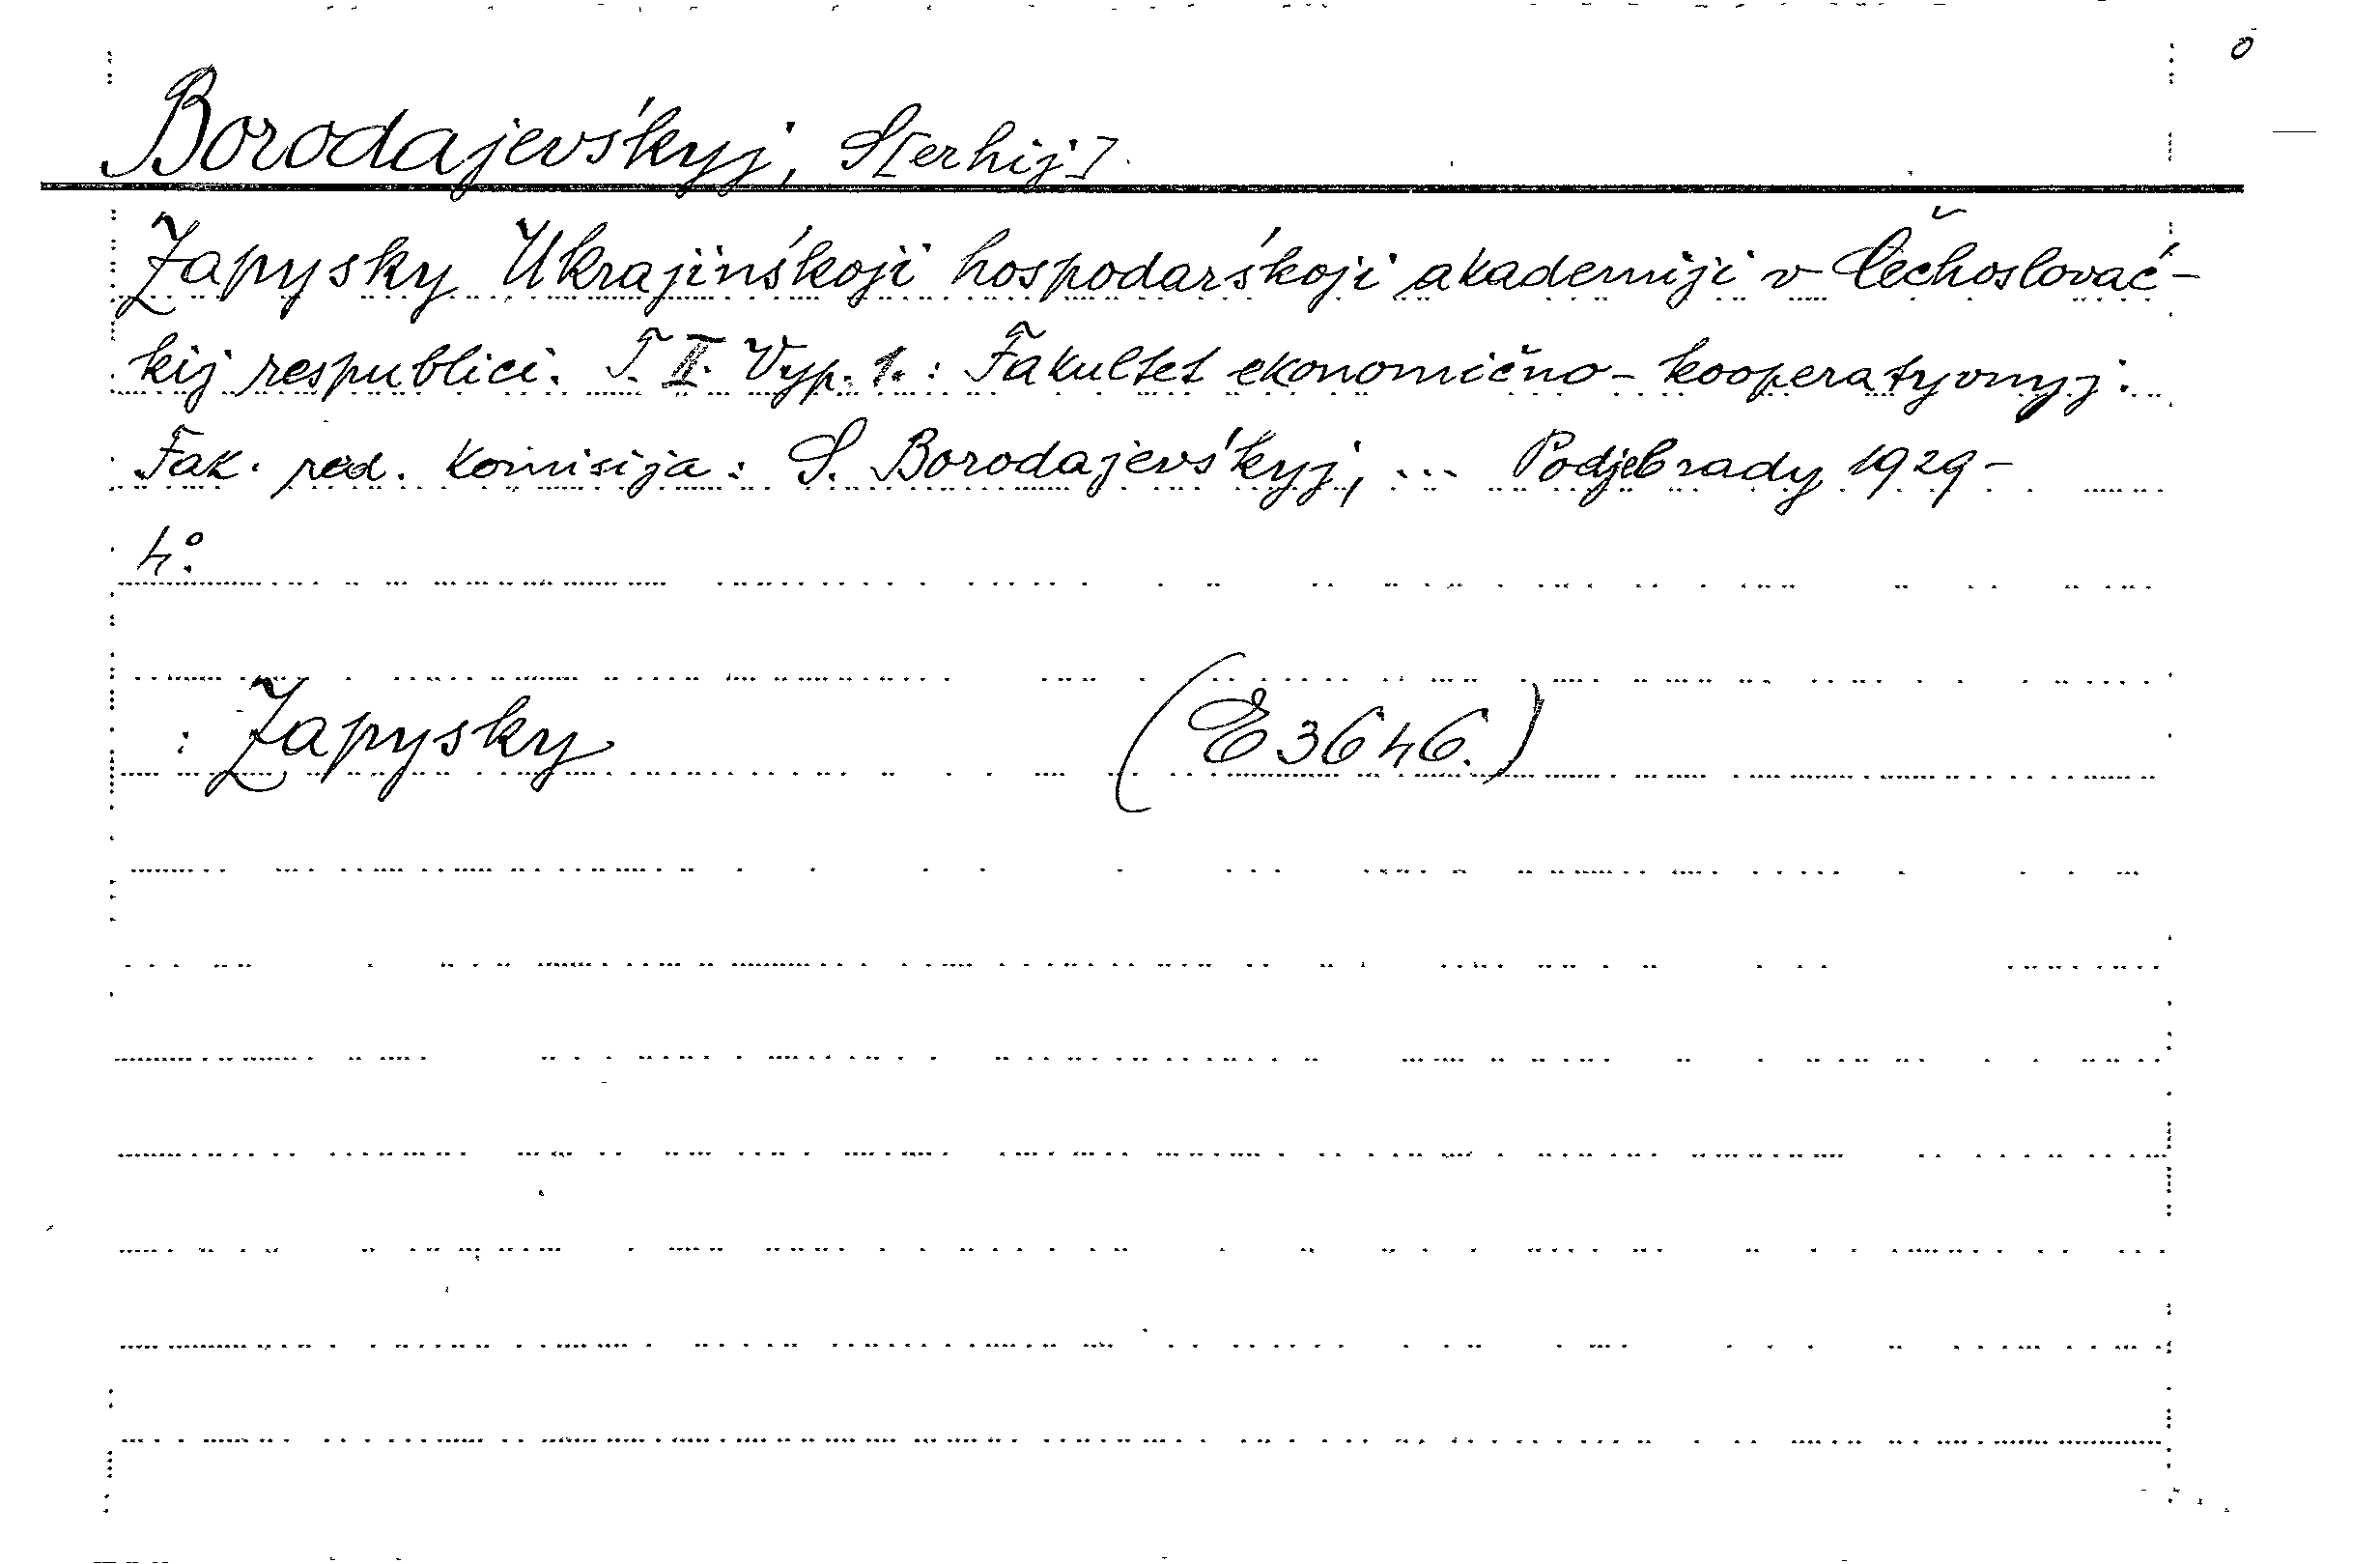 o
Borodajevśkyj, S[erhij].
Zapysky Ukrajinśkoji hospodarśkoji akademiji v Čechoslovać-
kij respublici. T. II. Vyp. 1.: Fakultet ekonomično-kooperatyvnyj.
Fak. red. komisija: S. Borodajevśkyj, ... Podjebrady 1929-
4°.
: Zapysky (E 3646.)